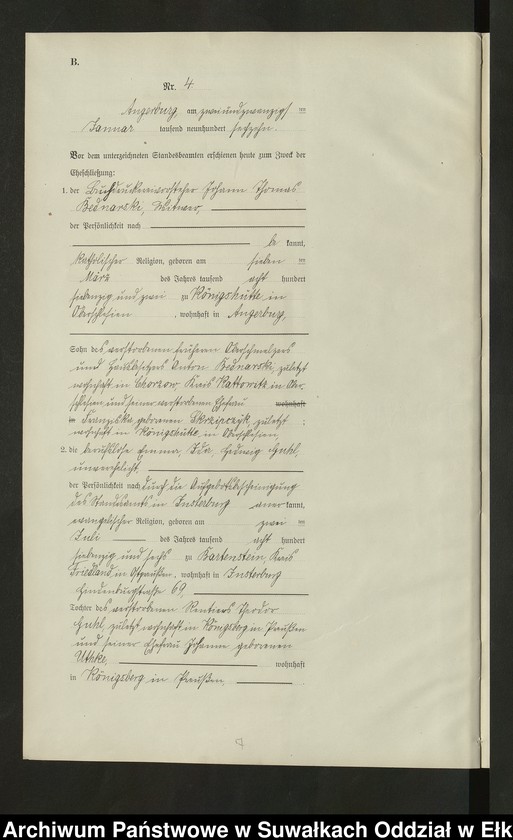 B.
Nr. 4.
Angerburg am zweiundzwanzigsten
Januar tausend neunhundert sechzehn.
Vor dem unterzeichneten Standesbeamten erschienen heute zum Zweck der
Eheschließung:
1. der Buchdruckereivorsteher Johann Thomas
Bednarski, Witwer,
der Persönlichkeit nach
be kannt,
katholischer Religion, geboren am sieben ten
März des Jahres tausend acht hundert
siebenzig und zwei zu Königshütte in
Oberschlesien, wohnhaft in Angerburg,
Sohn des verstorbenen früheren Oberschmelzers
und Hausbesitzers Anton Bednarski, zuletzt
wohnhaft in Chorzow, Kreis Kattowitz in Ober-
schlesien und seiner verstorbenen Ehefrau wohnhaft
in Franziska geborenen Skrzipczyk, zuletzt
wohnhaft in Königshütte, in Oberschlesien.
2. die berufslose Emma, Ida, Hedwig Guhl,
unverehelicht,
der Persönlichkeit nach durch die Aufgebotsbescheinigung
des Standesamts in Insterburg aner kannt,
evangelischer Religion, geboren am zwei ten
Juli des Jahres tausend acht hundert
siebenzig und sechs zu Bartenstein, Kreis
Friedland in Ostpreußen, wohnhaft in Insterburg
Hindenburgstraße 69
Tochter des verstorbenen Rentiers Theodor
Guhl, zuletzt wohnhaft in Königsberg in Preußen
und seiner Ehefrau Johanne geborenen
Uthke, wohnhaft
in Königsberg in Preußen,
Archiwum Państwowe w Suwałkach Oddział w Ełk